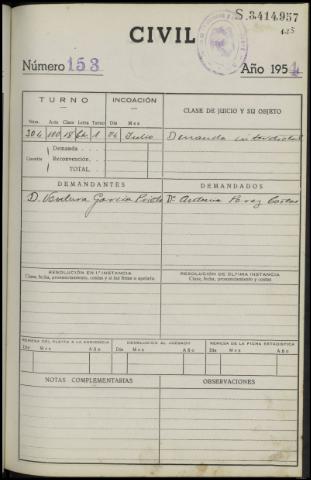 S.3.414.957
125
CIVIL
Número 153
Año 1954
TURNO
INCOACIÓN
CLASE DE JUICIO Y SU OBJETO
Núm. Acto Clase Letra Turno Día Mes
304 100 18 1 Julio Demanda interdictal
Demanda
Cuantía Reconvención
TOTAL
DEMANDANTES
DEMANDADOS
D. Ventura García Dª Antonia Pérez
RESOLUCIÓN EN 1ª INSTANCIA
Clase, fecha, pronunciamiento, costas y si fué firme o apelada
RESOLUCIÓN DE ÚLTIMA INSTANCIA
Clase, fecha, pronunciamiento y costas
REMESA DEL PLEITO A LA AUDIENCIA
DEVOLUCIÓN AL JUZGADO
REMESA DE LA FICHA ESTADÍSTICA
Día Mes Año Día Mes Año Día Mes Año
NOTAS COMPLEMENTARIAS
OBSERVACIONES